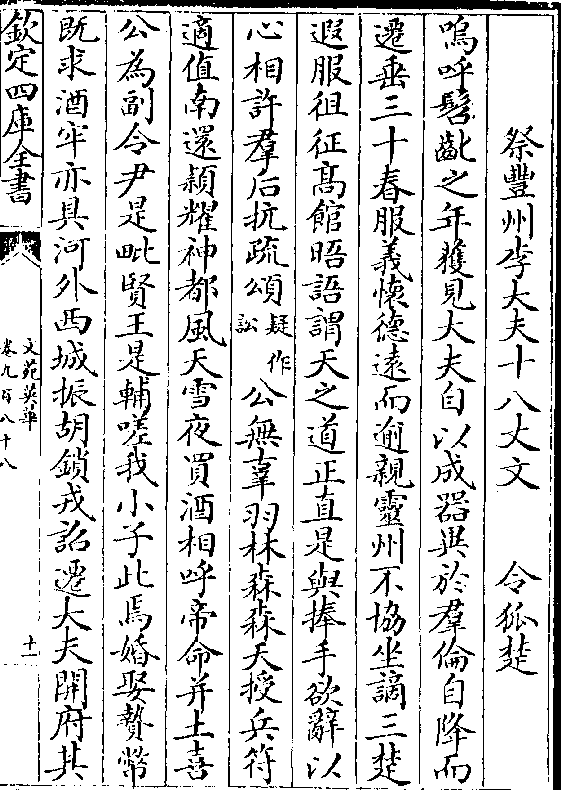 祭豐州李大夫十八丈文　　令狐楚
嗚呼髫齔之年獲見大夫自以成器異於羣倫自降而
遷垂三十春服義懷德遠而逾親靈州不協坐謫三楚
遐服徂征髙館晤語謂天之道正直是與捧手欲辭以
心相許羣后抗疏頌疑作訟公無辜羽林森森天授兵符
適值南還頴耀神都風天雪夜買酒相呼帝命并土喜
公為副令尹是毗賢王是輔嗟我小子此焉婚娶贄幣
既求酒牢亦具河外西城振胡鎖戎詔遷大夫開府其
欽定四庫全書
文苑英華
卷九百八十八
十一